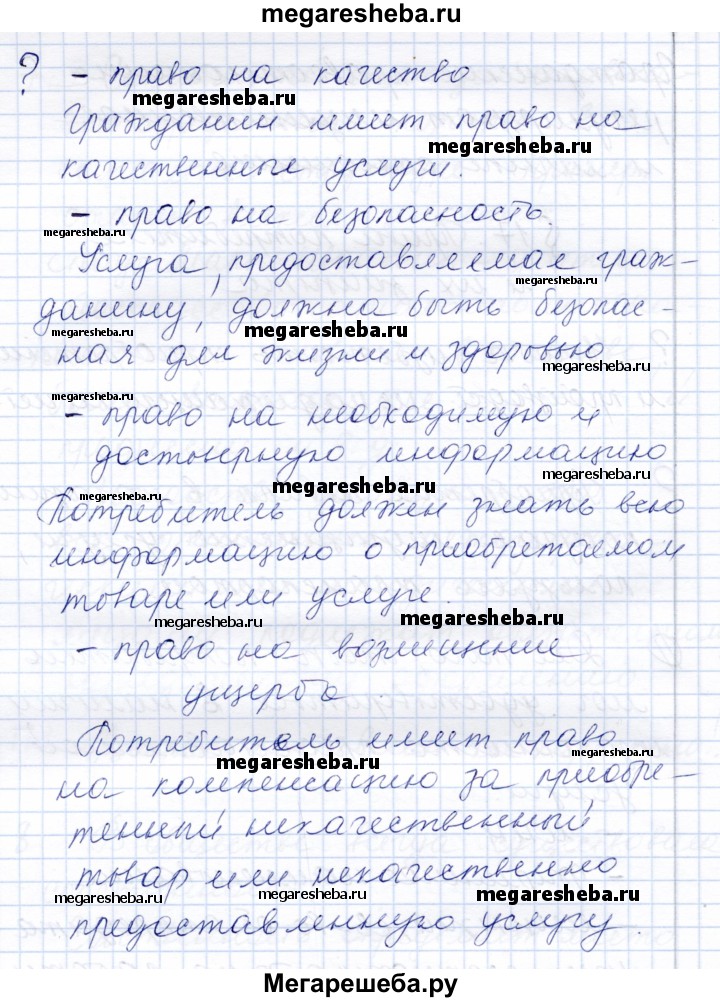 megaresheba.ru
? – право на качество
megaresheba.ru
Гражданин имеет право на
megaresheba.ru
качественные услуги.
– право на безопасность.
megaresheba.ru
Услуга, предоставляемая граж-
megaresheba.ru
данину, должна быть безопас-
megaresheba.ru
megaresheba.ru
ная для жизни и здоровью
megaresheba.ru
megaresheba.ru
– право на необходимую и
достоверную информацию
megaresheba.ru
megaresheba.ru
megaresheba.ru
Потребитель должен знать всю
информацию о приобретаемом
товаре или услуге.
megaresheba.ru
megaresheba.ru
– право на возмещение
ущерба.
Потребитель имеет право
megaresheba.ru
megaresheba.ru
на компенсацию за приобре-
тенный некачественный
товар или некачественно
megaresheba.ru
megaresheba.ru
megaresheba.ru
предоставленную услугу.
Мегарешеба.ру